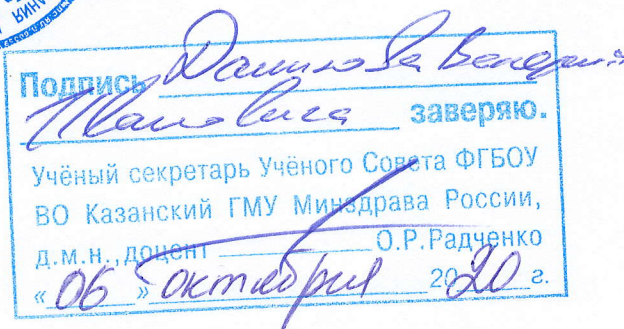 Подпись Данилова Валерия
Ивановича заверяю.
Учёный секретарь Учёного Совета ФГБОУ
ВО Казанский ГМУ Минздрава России,
д.м.н., доцент О.Р.Радченко
« 06 » октября 2020 г.